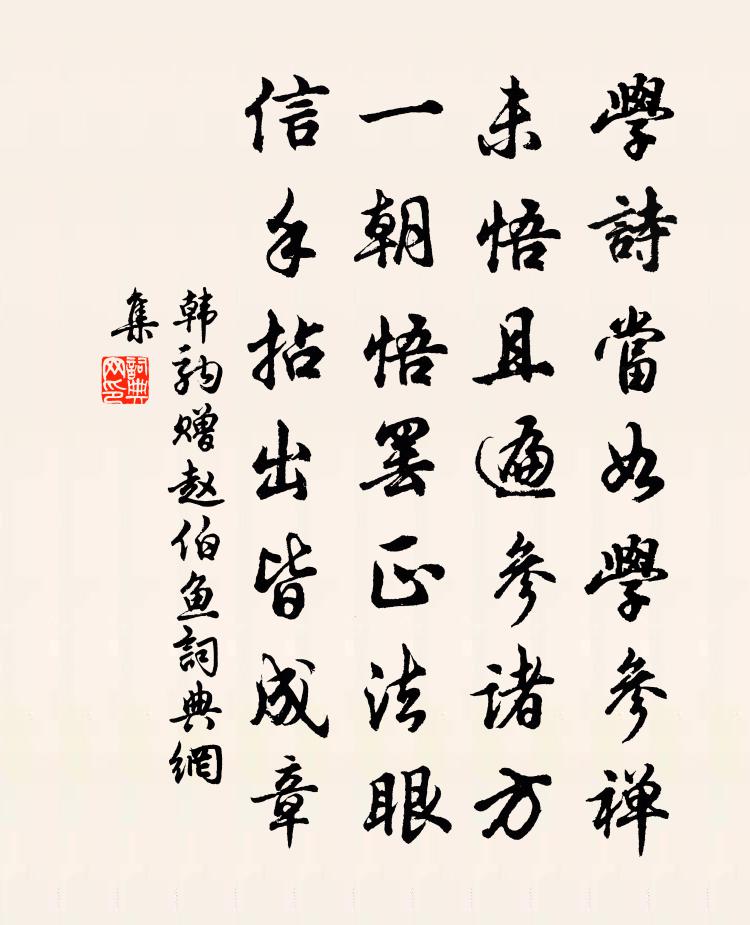 學詩當如學參禪
未悟且遍參諸方
一朝悟罷正法眼
信手拈出皆成章
韩驹赠赵伯鱼詞典網
集
詞典
网印